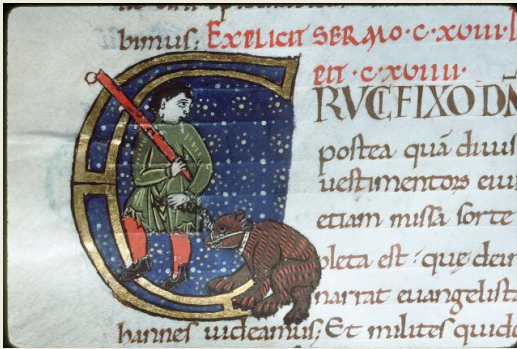 bimus; EXPLICIT SERMO·C·XVIII·
EIT·C·XVIIII·
CRVCIFIXO DN
postea quā diuis
uestimentoꝝ eiu
etiam missā sorte
pleta est; que dein
narrat euangelista
hannes uideamus; Et milites quide